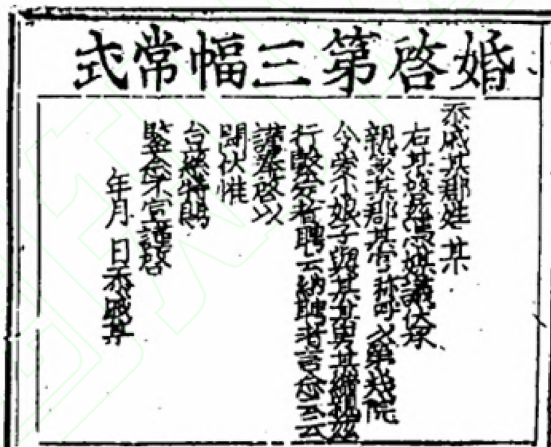 婚啓第三幅常式
忝戚某郡姓 某
右某啓兹憑媒議伏承
親家某郡某官稱呼以第幾院
令愛小娘子與某男某締親兹
行聘定者聘云納聘者言云云
謹奉啓以
聞伏惟
台慈特賜
鑒念不宣謹啓
年月 日忝戚某